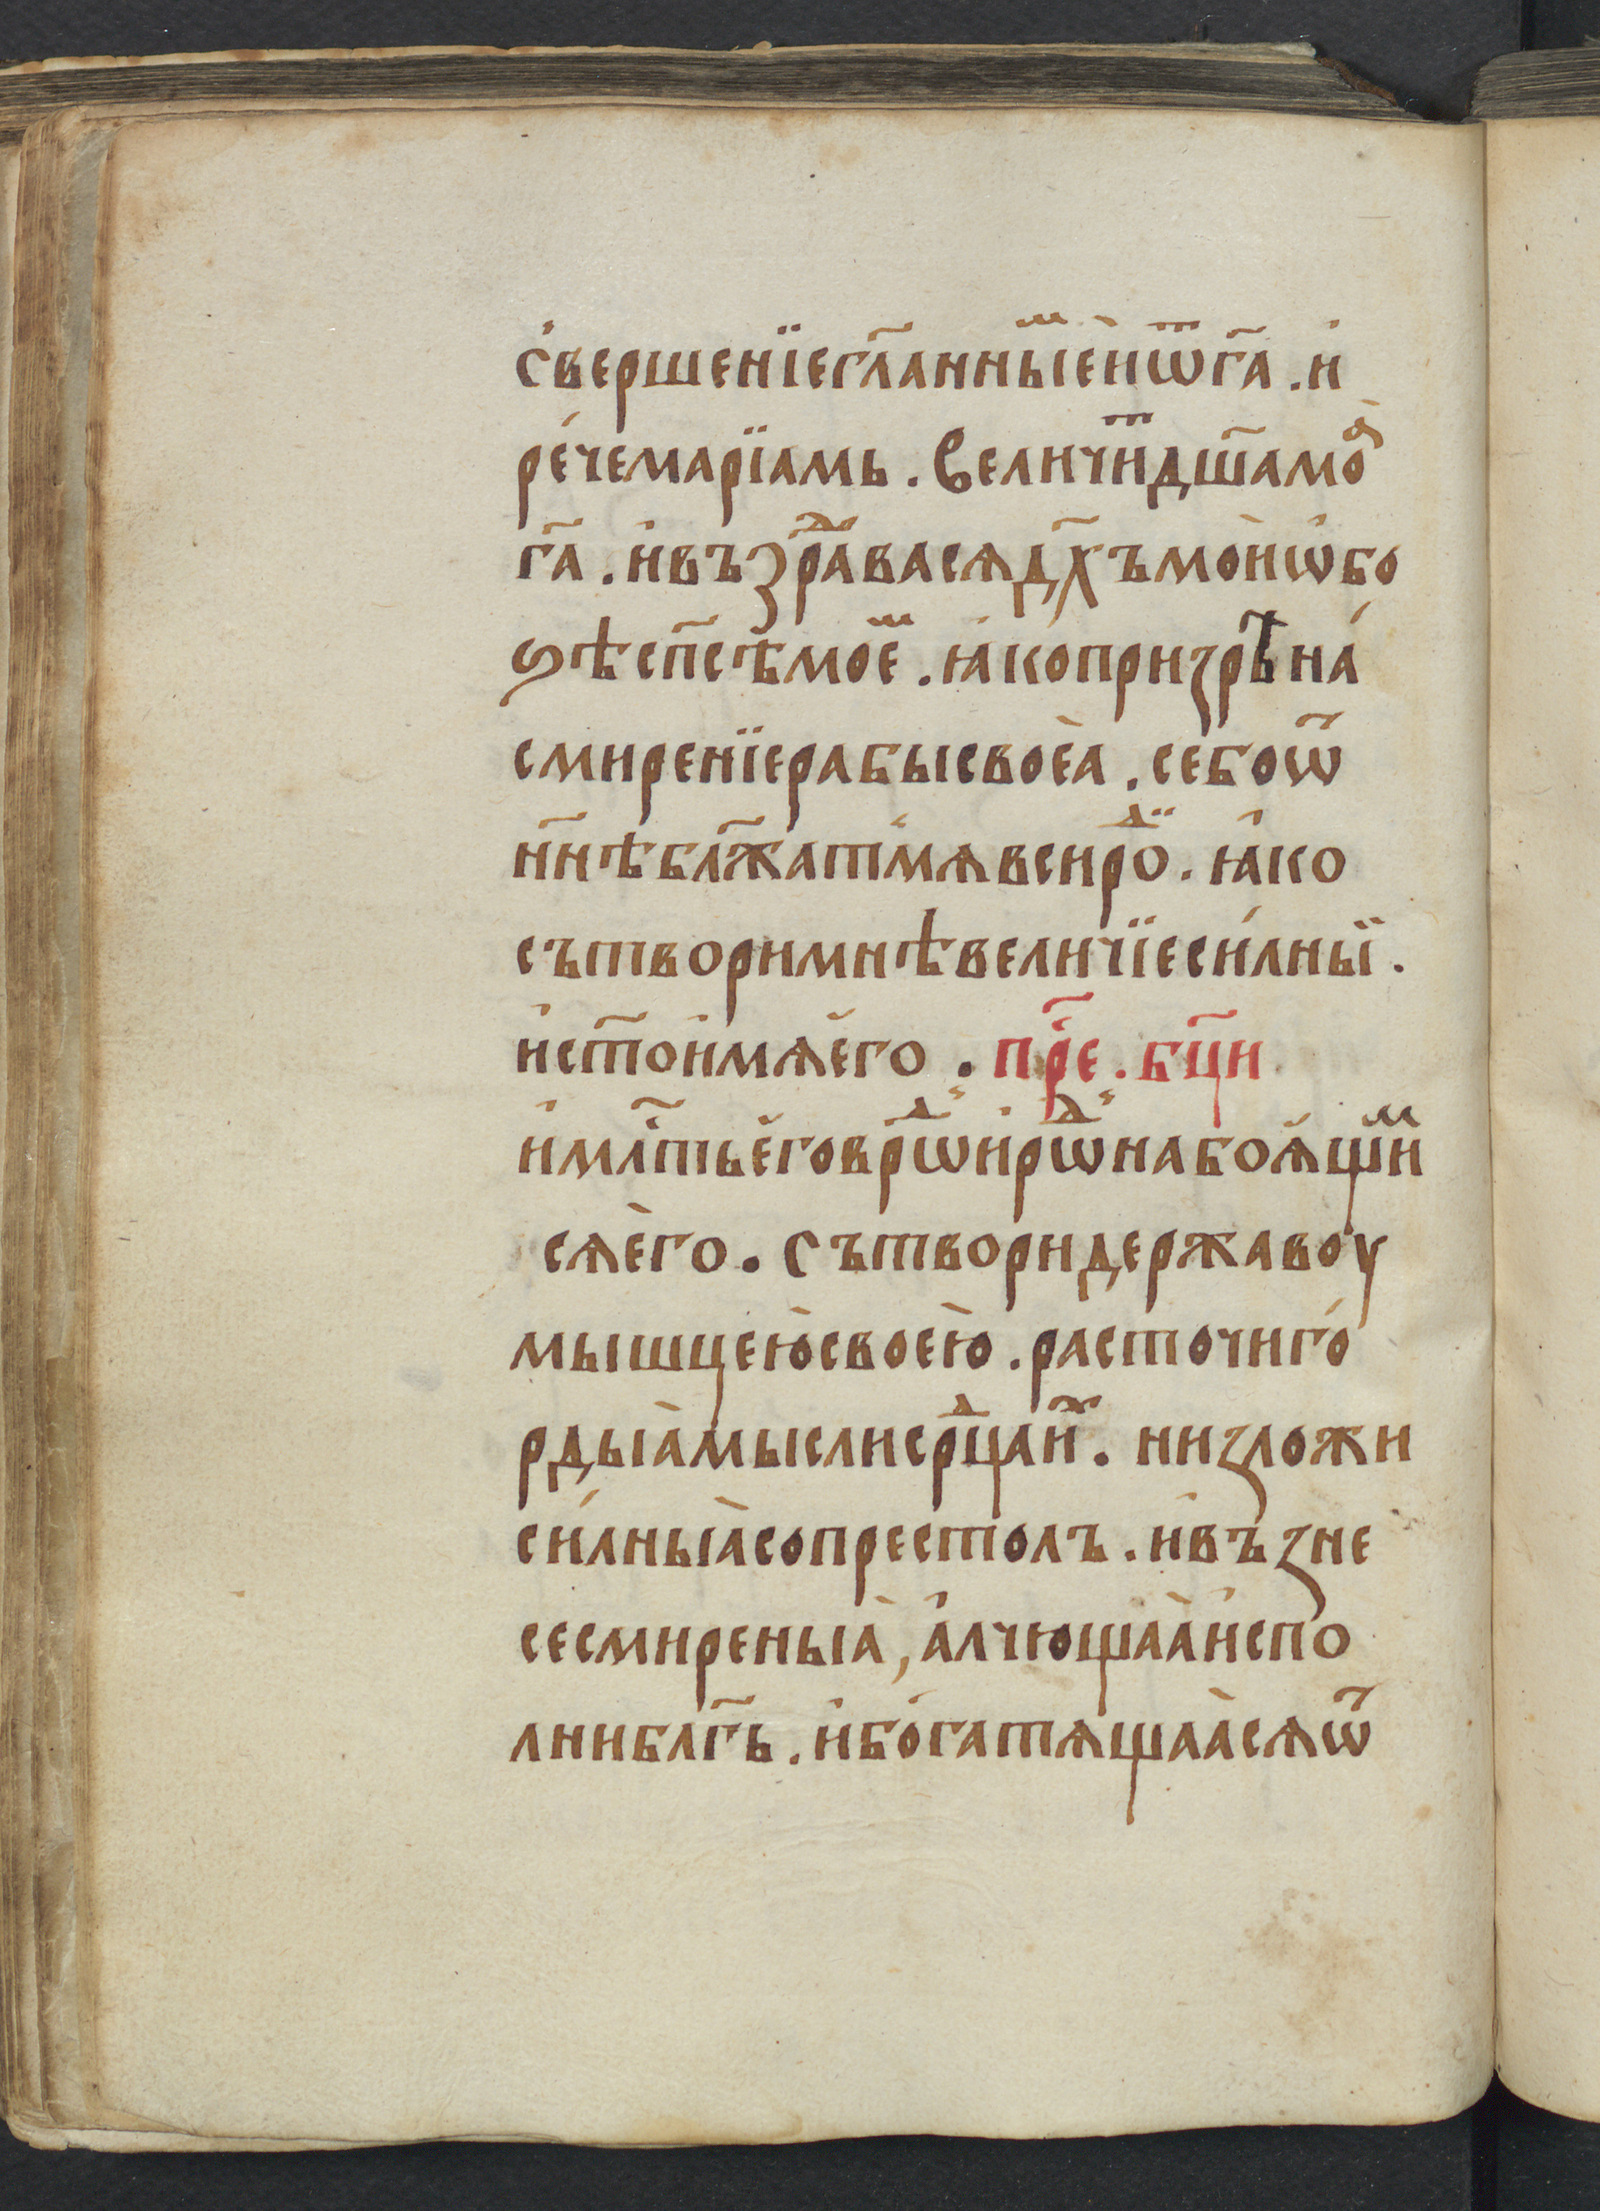 свершенїегл҃анныⷨе҆и҆ѿга҃ . и҆
ре́чемарїамь . величиⷮдш҃амоаⷭ҇
га҃ . и҆възраⷣвасѧдх҃ъмо́иѡ҆бо
ѕѣсп҃сѣмоеⷨ . ꙗ҆́копризрѣ́на
смиренїерабысвоеѐа . себоѿ
нн҃ѣблж҃атмѧвсироⷣ . ꙗ҆ко
сътворимнѣвеличїеси́лныї .
и҆ст҃ои҆мѧе҆го . прⷣе . бц҃и
и҆млⷭ҇тьегѡврѡⷣи҆рѡⷣнабоѧ́щиⷨ
сѧе҆го . сътворидержавоу
мышцею̀своею̀ . расточиго́
рдыа̀мыслисрⷣцаиⷯ . низложи
си́лныа̀сопрестолъ . и҆възне
сесмиреныа̀ , а҆лчющаа̀и҆спо
лниблг҃ь . и҆бога́тѧщаа̀сѧѿ